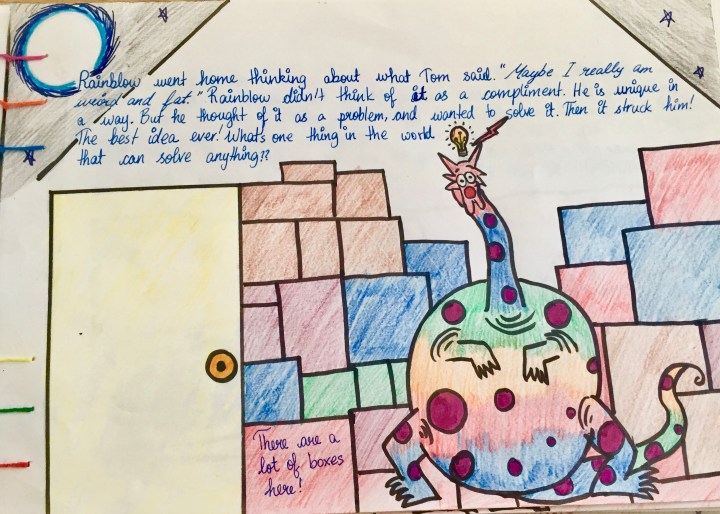 Rainblow went home thinking about what Tom said. "Maybe I really am
weird and fat." Rainblow didn't think of it as a compliment. He is unique in
a way. But he thought of it as a problem, and wanted to solve it. Then it struck him!
The best idea ever! Whats one thing in the world
that can solve anything??
There are a
lot of boxes
here!